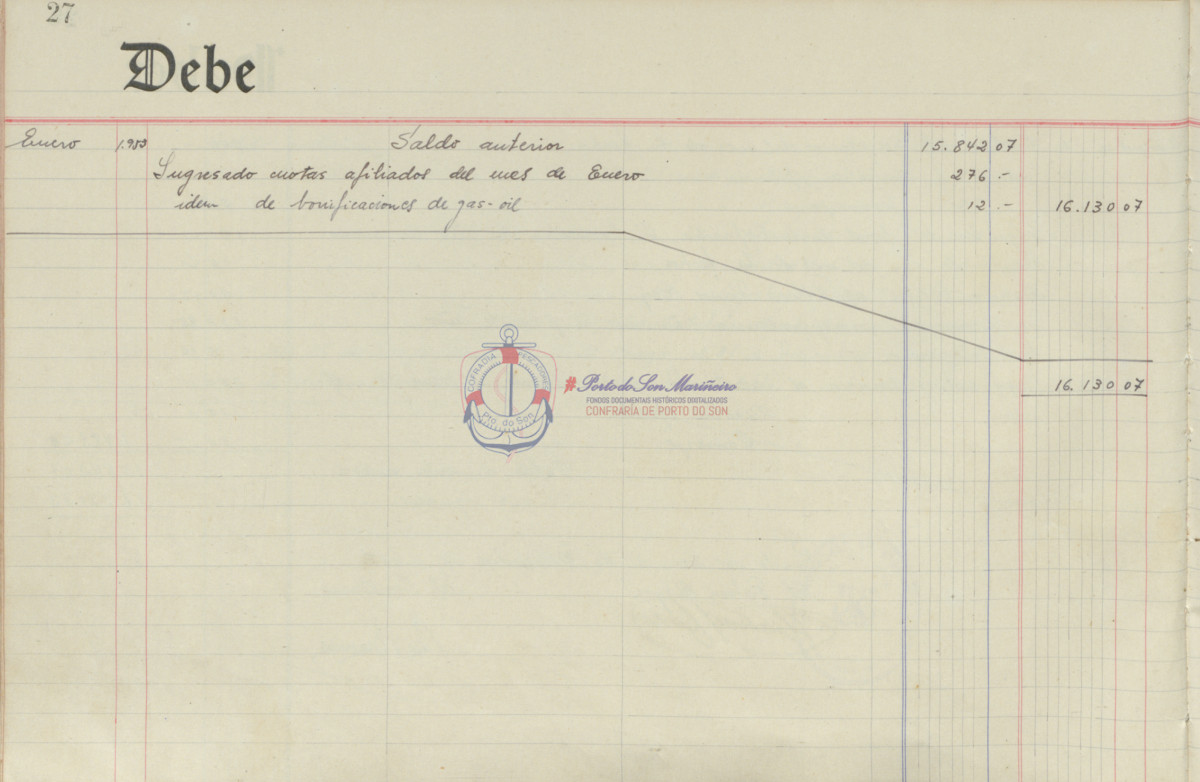 27
Debe
Enero 1.950 Saldo anterior 15.842 07
Ingresado cuotas afiliados del mes de Enero 276 .-
idem de bonificaciones de gas-oil 12 .- 16.130 07
16.130 07
COFRADIA PESCADORES
Pto. do Son
#Porto do Son Mariñeiro
FONDOS DOCUMENTAIS HISTÓRICOS DIXITALIZADOS
CONFRARÍA DE PORTO DO SON